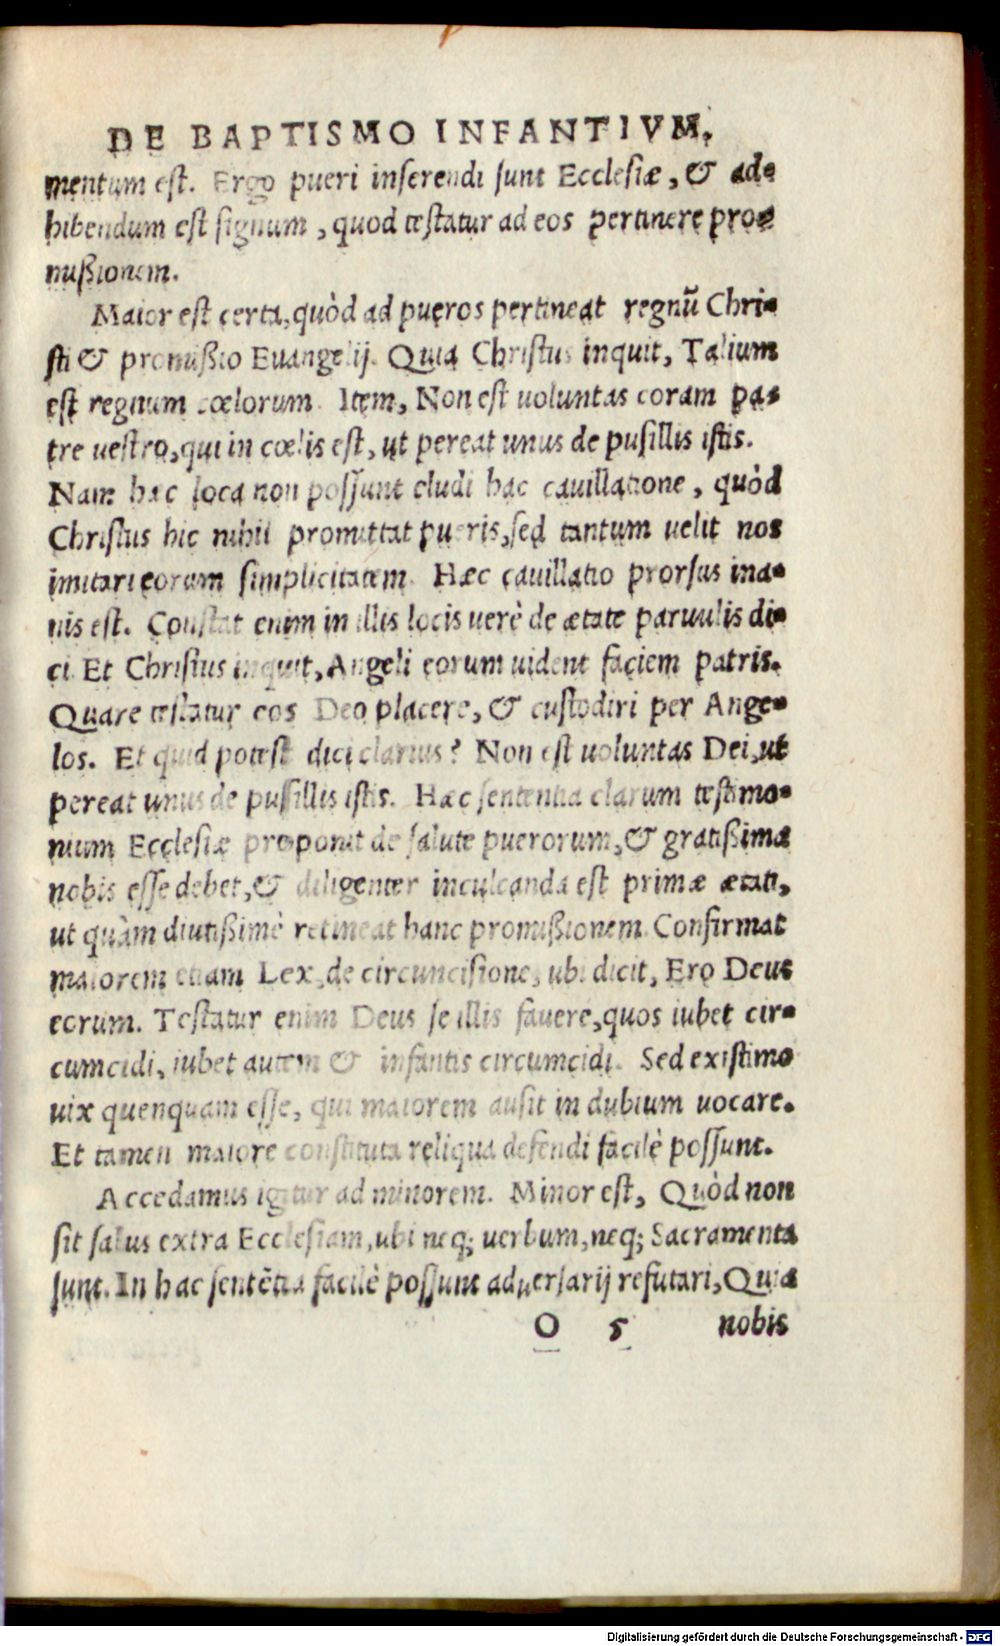 DE BAPTISMO INFANTIVM.
mentum est. Ergo pueri inserendi sunt Ecclesiæ, & ad-
hibendum est signum, quod testatur ad eos pertinere pro-
mißionem.
Maior est certa, quòd ad pueros pertineat regnū Chri-
sti & promißio Euangelij. Quia Christus inquit, Talium
est regnum cœlorum. Item, Non est uoluntas coram pa-
tre uestro, qui in cœlis est, ut pereat unus de pusillis istis.
Nam hæc loca non possunt eludi hac cauillatione, quòd
Christus hic nihil promittat pueris, sed tantum uelit nos
imitari eorum simplicitatem. Hæc cauillatio prorsus ina-
nis est. Constat enim in illis locis uerè de ætate paruulis di-
ci. Et Christus inquit, Angeli eorum uident faciem patris.
Quare testatur eos Deo placere, & custodiri per Ange-
los. Et quid potest dici clarius? Non est uoluntas Dei, ut
pereat unus de pusillis istis. Hæc sententia clarum testimo-
nium Ecclesiæ proponit de salute puerorum, & gratißima
nobis esse debet, & diligenter inculcanda est primæ ætati,
ut quàm diutißimè retineat hanc promißionem. Confirmat
maiorem etiam Lex, de circuncisione, ubi dicit, Ero Deus
eorum. Testatur enim Deus se illis fauere, quos iubet cir-
cumcidi, iubet autem & infantis circumcidi. Sed existimo
uix quenquam esse, qui maiorem ausit in dubium uocare.
Et tamen maiore constituta reliqua defendi facilè possunt.
Accedamus igitur ad minorem. Minor est, Quòd non
sit salus extra Ecclesiam, ubi neq; uerbum, neq; Sacramenta
sunt. In hac sentētia facilè possunt aduersarij refutari, Quia
O 5 nobis
Digitalisierung gefördert durch die Deutsche Forschungsgemeinschaft - DFG